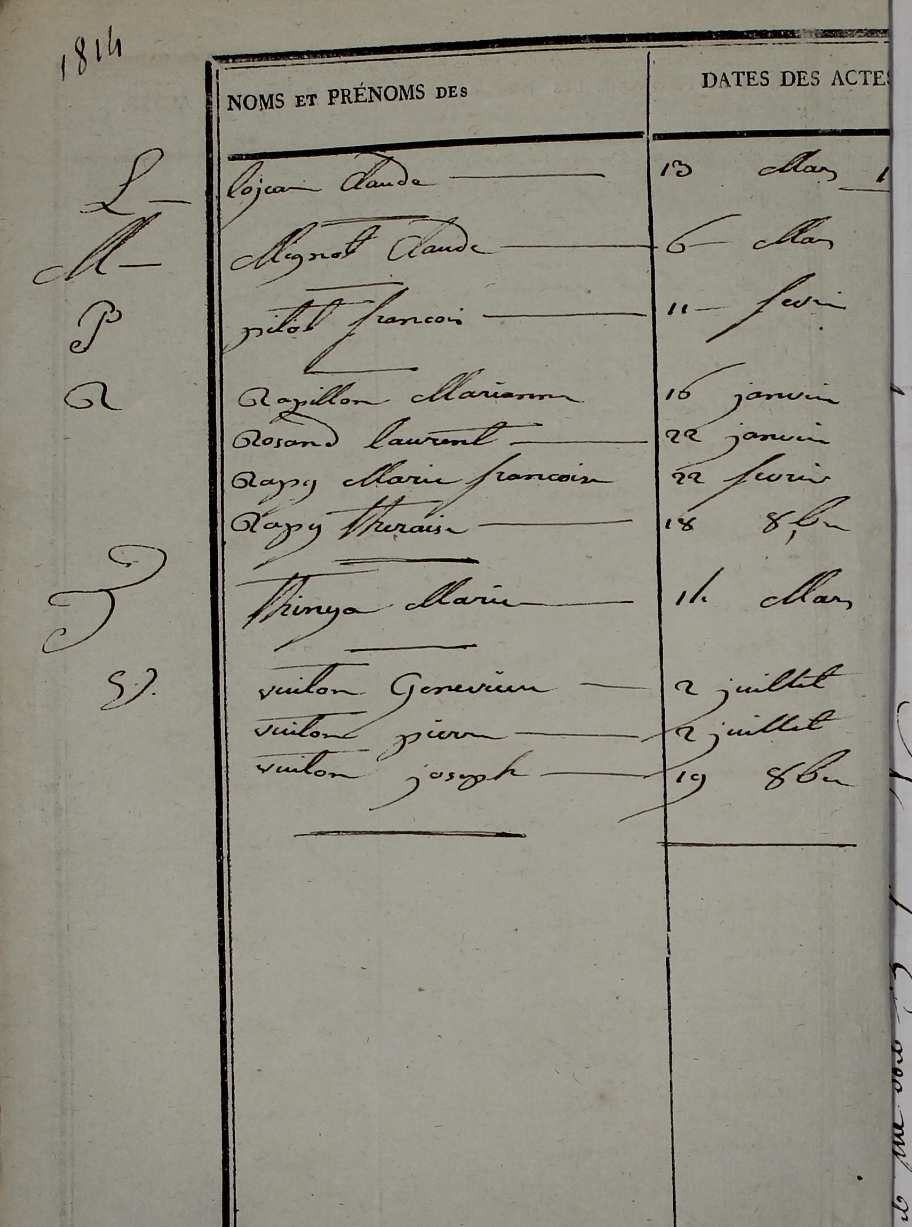 1814
NOMS ET PRÉNOMS DES DATES DES ACTES
L lojean Claude 13 Mars 1
M Mignot Claude 6 Mars
P pitot francois 11 fevrier
R Rapillon Marianne 16 janvier
Rosand laurent 22 janvier
Rapy Marie francoise 22 fevrier
Rapy theraise 18 8bre
T Marie 14 Mars
V vuiton Genevieve 2 juillet
vuiton pierre 2 juillet
vuiton joseph 19 8bre